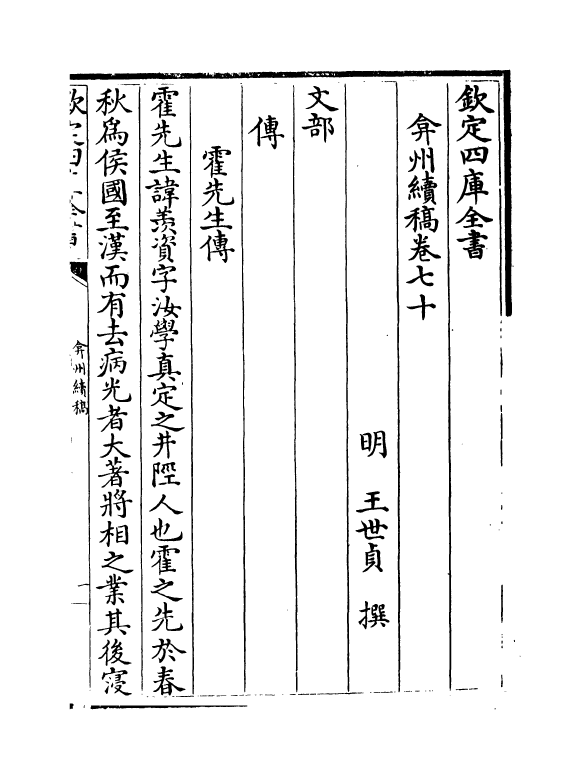 欽定四庫全書
弇州續稿卷七十
明　王世貞　撰
文部
傳
霍先生傳
霍先生諱羨資字汝學真定之井陘人也霍之先於春
秋為侯國至漢而有去病光者大著將相之業其後寖
欽定四庫全書
弇州續稿
一